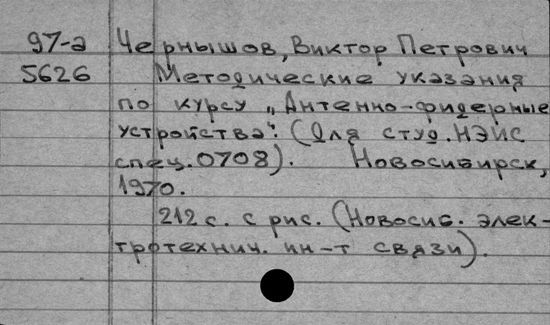 97-а Чернышов, Виктор Петрович
5626 Методические указания
по курсу „Антенно-фидерные
устройства". (Для студ. НЭИС
спец. 0708). Новосибирск,
1970.
212 с. с рис. (Новосиб. элек-
тротехнич. ин-т связи).